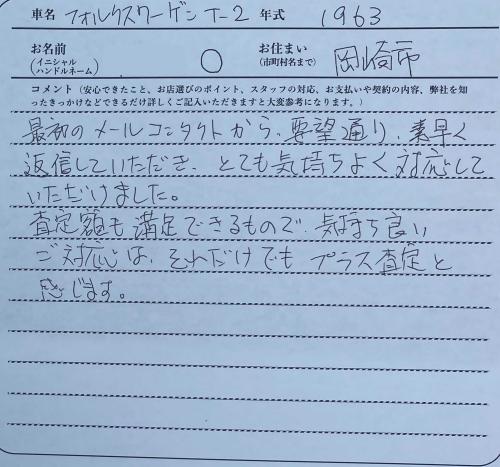 車名 フォルクスワーゲン T-2 年式 1963
お名前 (イニシャル ハンドルネーム) O お住まい (市町村名まで) 岡崎市
コメント (安心できたこと、お店選びのポイント、スタッフの対応、お支払いや契約の内容、弊社を知
ったきっかけなどできるだけ詳しくご記入いただきますと大変参考になります。)
最初のメールコンタクトから、要望通り、素早く
返信していただき、とても気持ちよく対応して
いただけました。
査定額も満足できるもので、気持ち良い
ご対応は、それだけでもプラス査定と
感じます。